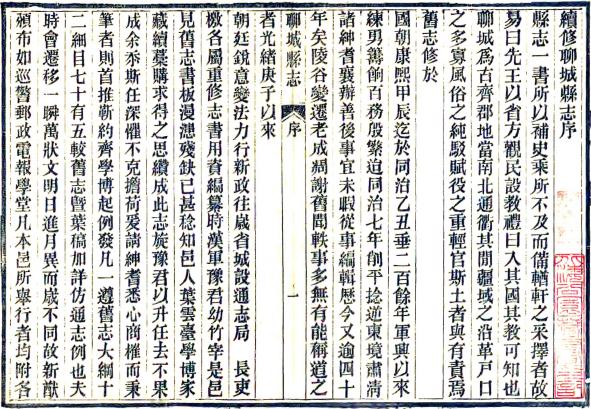 續修聊城縣志序
縣志一書所以補史乘所不及而備輶軒之采擇者故
易曰先王以省方觀民設教禮曰入其國其教可知也
聊城爲古齊郡地當南北通衢其間疆域之沿革戶口
之多寡風俗之純駁賦役之重輕官斯土者與有責焉
舊志修於
國朝康熙甲辰迄於同治乙丑垂二百餘年軍興以來
練男籌餉百務殷繁迨同治七年削平捻逆東境肅清
諸紳耆襄辦善後事宜未暇從事編輯歷今又逾四十
年矣陵谷變遷老成凋謝舊聞軼事多無有能稱道之
者光緒庚子以來
聊城縣志
序
一
朝廷銳意變法力行新政往歲省城設通志局
長吏
檄各屬重修志書用資編纂時漢軍豫君幼竹宰是邑
見舊志書板漫漶殘缺已甚稔知邑人葉雲臺學博家
藏續藁購求得之思續成此志旋豫君以升任去不果
成余忝斯任深懼不克擔荷爰請紳耆悉心商榷而秉
筆者則首推靳約齊學博起例發凡一遵舊志大綱十
二細目七十有五較舊志暨葉稿加詳仿通志例也夫
時會遷移一瞬萬狀文明日進月異而歲不同故新猷
頒布如巡警郵政電報學堂凡本邑所舉行者均附各